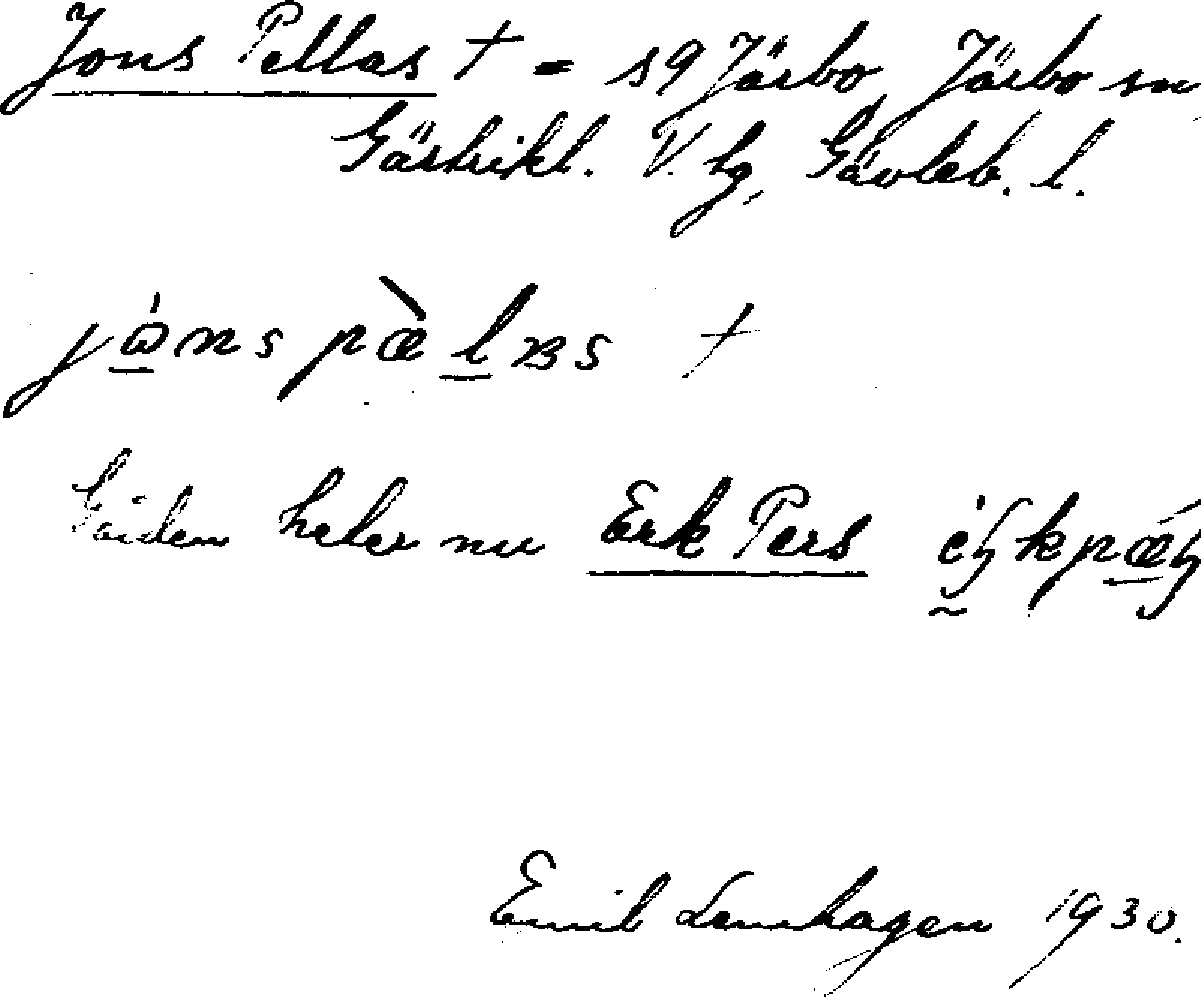 Jons Pellas † = 19 Järbo, Järbo sn
Gästrikl. V. tg, Gävleb. l.
Gården heter nu Erk Pers
Emil Lennhagen 1930.